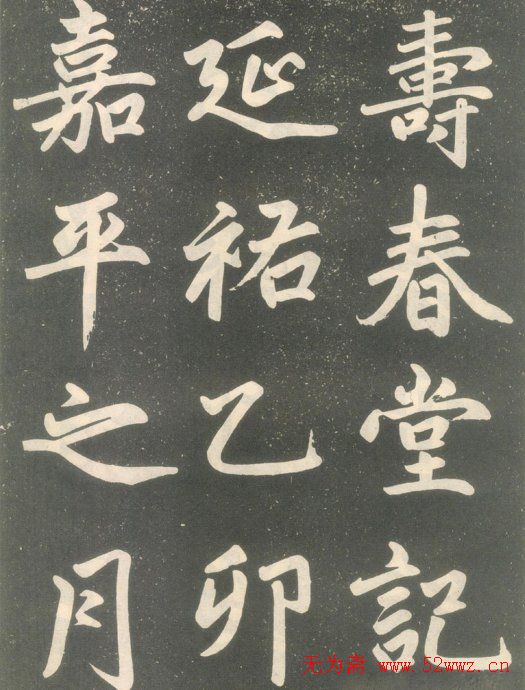 壽春堂記
延祐乙卯
嘉平之月
无为斋 www.52wwz.cn